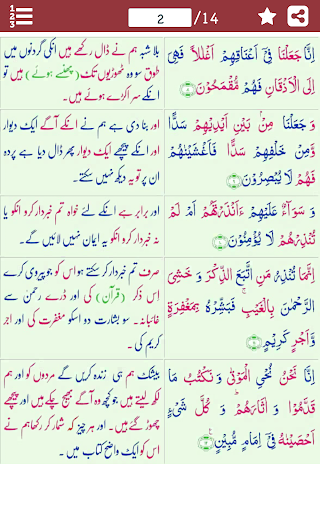 1 2 3
2
/14
اِنَّا جَعَلْنَا فِیْۤ اَعْنَاقِهِمْ اَغْلٰلًا فَهِیَ
اِلَی الْاَذْقَانِ فَهُمْ مُّقْمَحُوْنَ
بلا شبہ ہم نے ڈال رکھے ہیں انکی گردنوں میں
طوق سو وہ ٹھوڑیوں تک (پھنسے ہوئے) ہیں تو
انکے سر اکڑے ہوئے ہیں۔
وَ جَعَلْنَا مِنْۢ بَیْنِ اَیْدِیْهِمْ سَدًّا
وَّ مِنْ خَلْفِهِمْ سَدًّا فَاَغْشَیْنٰهُمْ
فَهُمْ لَا یُبْصِرُوْنَ
اور بنا دی ہے ہم نے انکے آگے ایک دیوار
اور انکے پیچھے ایک دیوار پھر ڈال دیا ہے پردہ
ان پر تو یہ دیکھ نہیں سکتے۔
وَ سَوَآءٌ عَلَیْهِمْ ءَاَنْذَرْتَهُمْ اَمْ لَمْ
تُنْذِرْهُمْ لَا یُؤْمِنُوْنَ
اور برابر ہے انکے لئے خواہ تم خبردار کرو انکو یا
نہ خبردار کرو انکو یہ ایمان نہیں لائیں گے۔
اِنَّمَا تُنْذِرُ مَنِ اتَّبَعَ الذِّكْرَ وَ خَشِیَ
الرَّحْمٰنَ بِالْغَیْبِ ۚ فَبَشِّرْهُ بِمَغْفِرَةٍ
وَّ اَجْرٍ كَرِیْمٍ
صرف تم خبردار کر سکتے ہو اس کو جو پیروی کرے
اس ذکر (قرآن) کی اور ڈرے رحمن سے
غائبانہ۔ سو بشارت دو اسکو مغفرت کی اور اجر
کریم کی۔
اِنَّا نَحْنُ نُحْیِ الْمَوْتٰی وَ نَكْتُبُ مَا
قَدَّمُوْا وَ اٰثَارَهُمْ ؕ وَ كُلَّ شَیْءٍ
اَحْصَیْنٰهُ فِیْۤ اِمَامٍ مُّبِیْنٍ
بیشک ہم ہی زندہ کریں گے مردوں کو اور ہم
لکھ لیتے ہیں جو کچھ وہ آگے بھیج چکے ہیں اور پیچھے
چھوڑ گئے ہیں۔ اور ہر چیز کہ شمار کر رکھا ہم نے
اس کو ایک واضح کتاب میں ۔